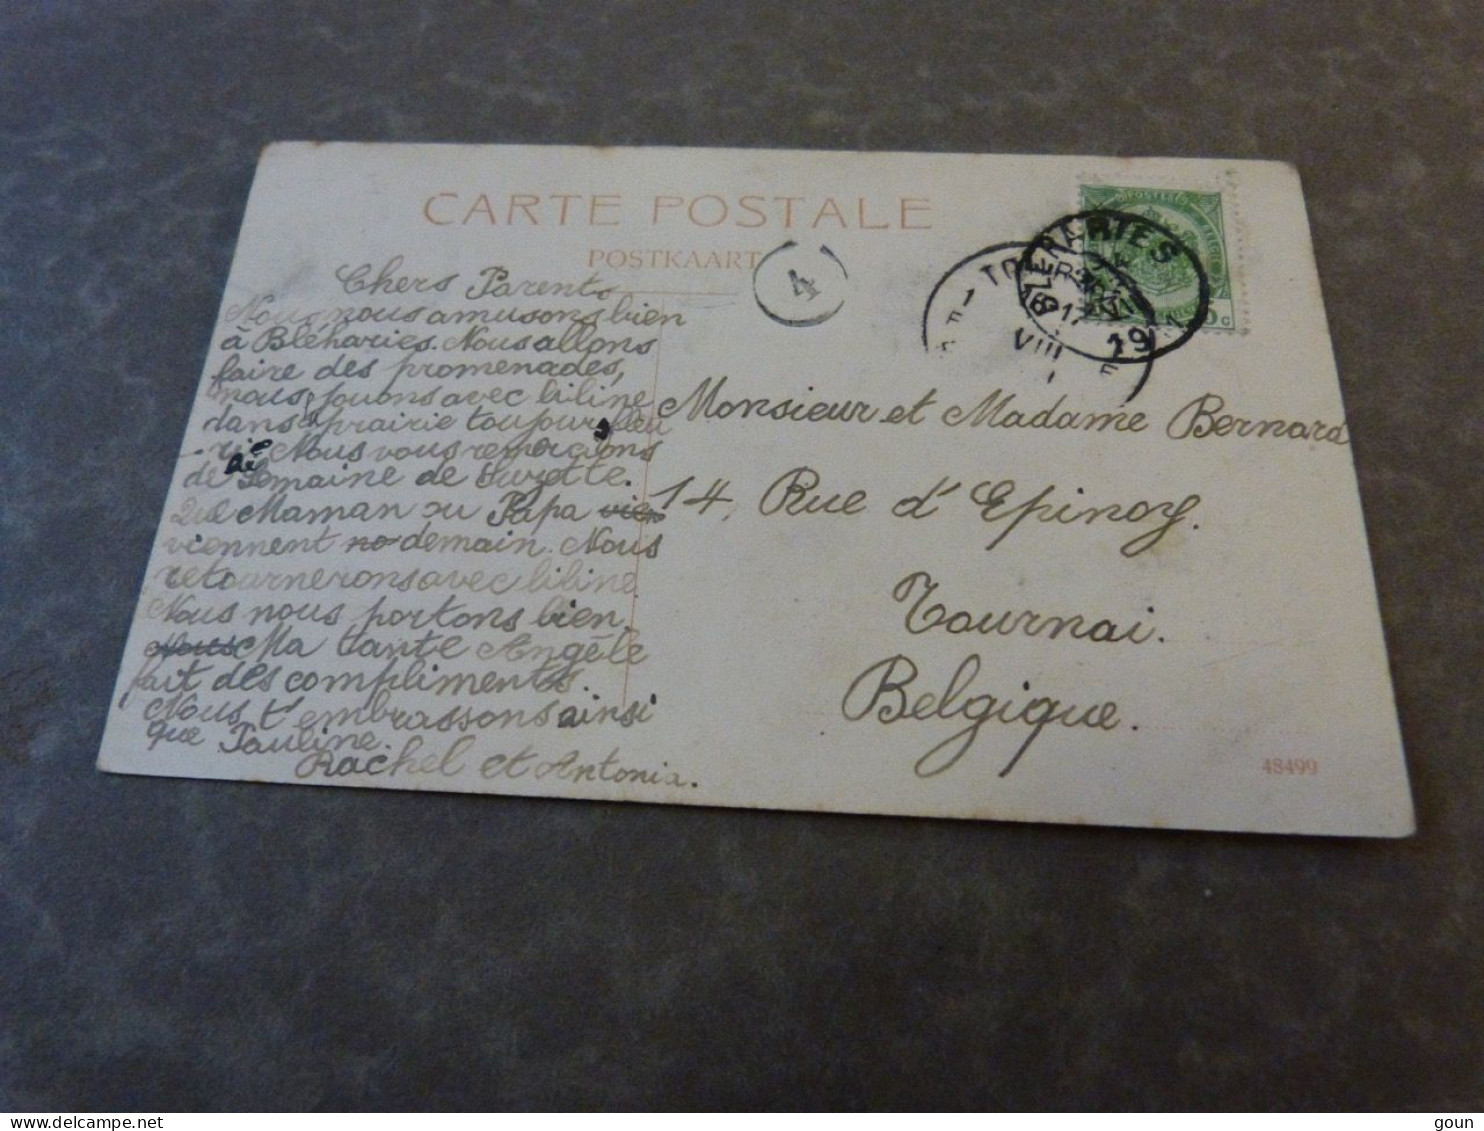 CARTE POSTALE
POSTKAART
4
BLEHARIES
VIII
19
Chers Parents
Nous nous amusons bien
à Bléharies. Nous allons
faire des promenades,
nous jouons avec liline
dans prairie toujours fleu
rie. Nous vous remercions
de Semaine de Suzette.
Que Maman ou Papa vien
viennent no demain. Nous
retournerons avec liline.
Nous nous portons bien.
Nous Ma tante Angèle
fait des compliments.
Nous t'embrassons ainsi
que Pauline.
Rachel et Antonia.
Monsieur et Madame Bernard
14, Rue d'Epinoy.
Tournai.
Belgique.
48499
delcampe.net
goun